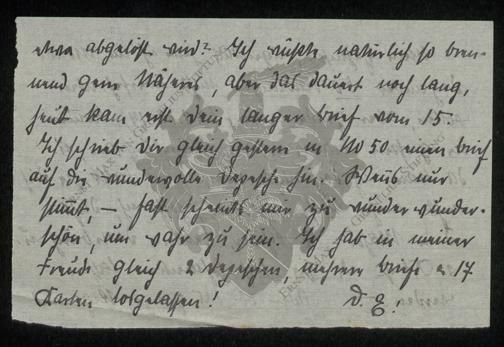 etwa abgelöst wird? Ich wüßte natürlich so bren-
nend gern Näheres, aber das dauert noch lang,
heut kam erst Dein langer Brief vom 15.
Ich schrieb Dir gleich gestern in No 50 einen Brief
auf die wundervolle Depesche hin. Wenns nur
stimmt, – fast scheints mir zu wunder wunder-
schön, um wahr zu sein. Ich hab in meiner
Freude gleich 2 Depeschen, mehrere Briefe u 17
Karten losgelassen! D. E.!